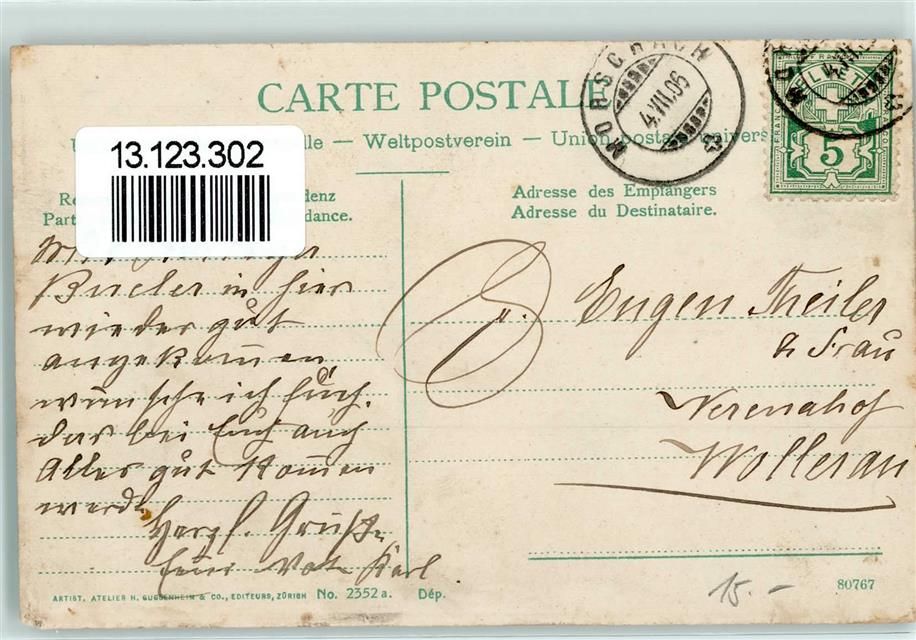 CARTE POSTALE
lle — Weltpostverein — Union postale univers
13.123.302
denz
Part dance.
Adresse des Empfängers
Adresse du Destinataire.
MORSCHACH
4.VII.06
HELVETIA
5
Bucler in hier
wieder gut
angekommen
wünsche ich Euch,
das bei Euch auch
Alles gut kommen
werde
Herzl. Grüsse
Euer Karl
Eugen Theiler
& Frau
Verenahof
Wollerau
ARTIST. ATELIER H. GUGGENHEIM & CO., EDITEURS, ZÜRICH No. 2352 a. Dép.
15.–
80767